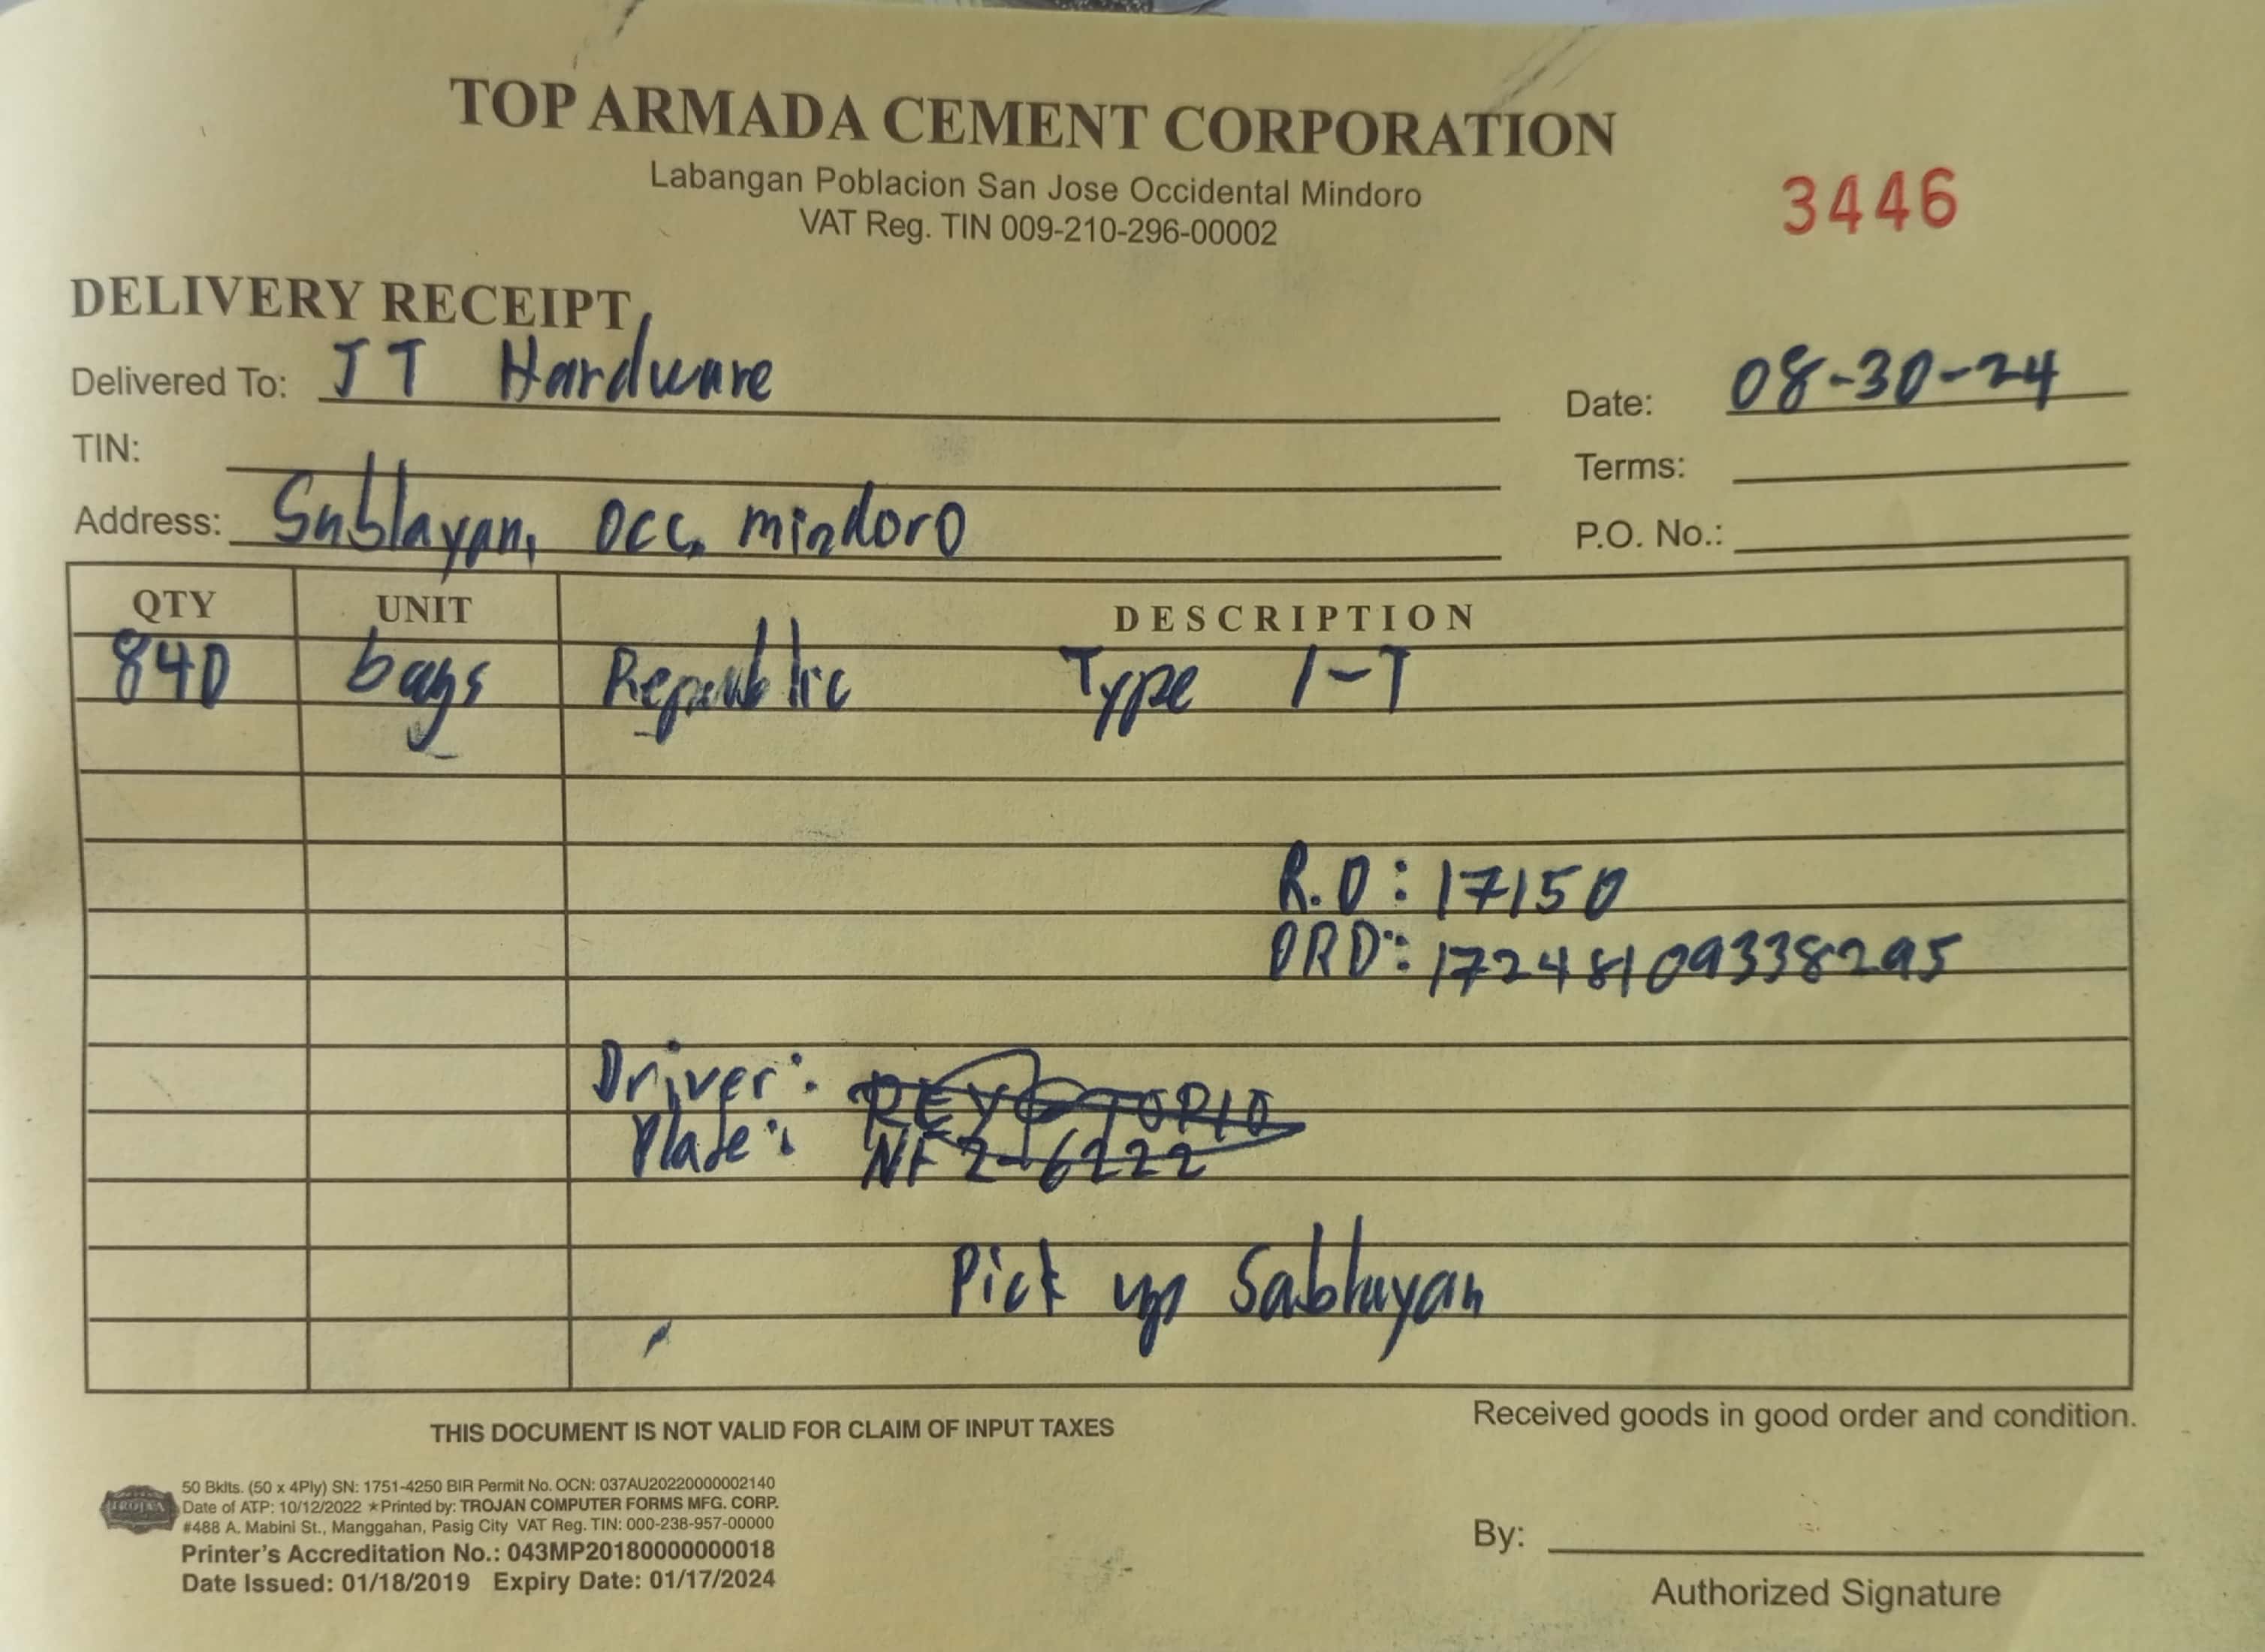 TOP ARMADA CEMENT CORPORATION
Labangan Poblacion San Jose Occidental Mindoro
VAT Reg. TIN 009-210-296-00002
3446
DELIVERY RECEIPT
Delivered To: JT Hardware
Date: 08-30-24
TIN:
Terms:
Address: Sablayan, Occ. mindoro
P.O. No.:
QTY UNIT DESCRIPTION
840 bags Republic Type 1-T
R.O: 17150
ORD: 17248109338295
Driver: REY OTORIO
Plate: NF2-6222
Pick up Sablayan
THIS DOCUMENT IS NOT VALID FOR CLAIM OF INPUT TAXES
Received goods in good order and condition.
TROJAN
50 Bklts. (50 x 4Ply) SN: 1751-4250 BIR Permit No. OCN: 037AU20220000002140
Date of ATP: 10/12/2022 ★Printed by: TROJAN COMPUTER FORMS MFG. CORP.
#488 A. Mabini St., Manggahan, Pasig City VAT Reg. TIN: 000-238-957-00000
Printer's Accreditation No.: 043MP20180000000018
Date Issued: 01/18/2019 Expiry Date: 01/17/2024
By:
Authorized Signature